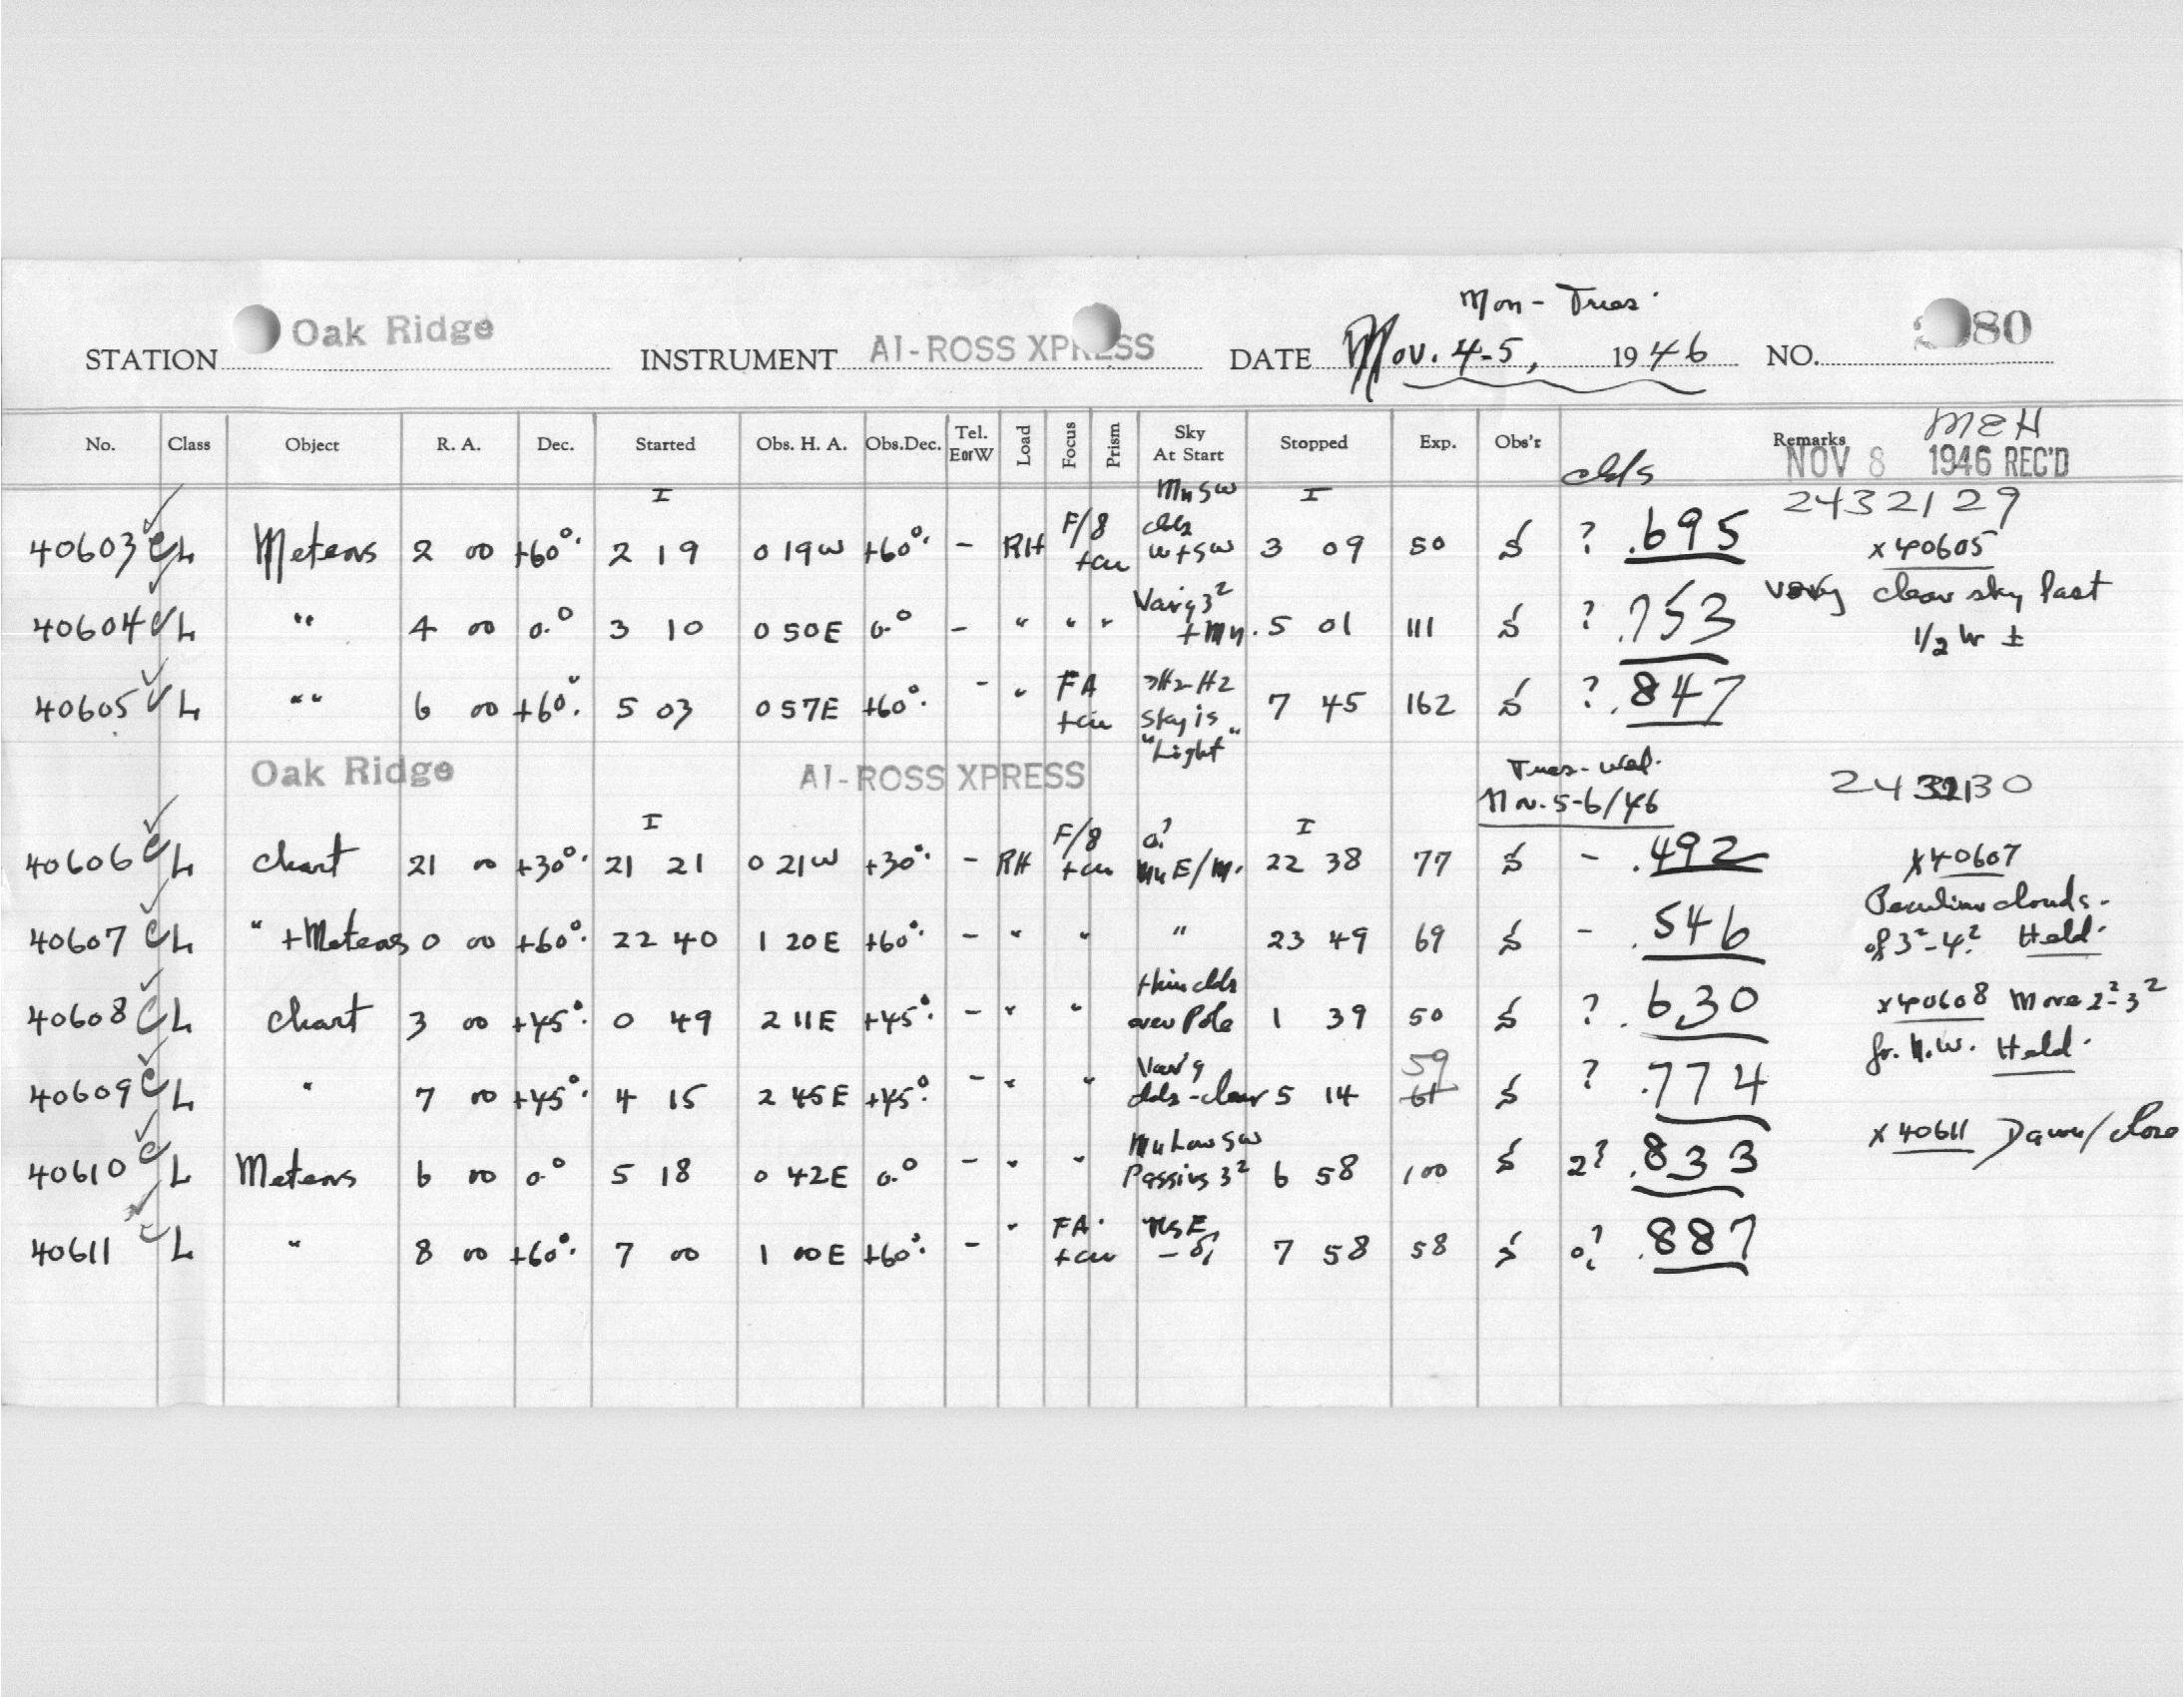 Mon - Tues.
STATION Oak Ridge INSTRUMENT AI-ROSS XPRESS DATE Nov. 4-5, 1946 NO. 80
MEH
No. Class Object R. A. Dec. Started Obs. H. A. Obs.Dec. Tel. EorW Load Focus Prism Sky At Start Stopped Exp. Obs'r Remarks
clds NOV 8 1946 REC'D
I Mn SW I 2432129
40603 C L Meteors 2 00 +60°. 2 19 0 19W +60°. - RH F/8 +cu clds W+SW 3 09 50 S ? .695 x40605
40604 C L " 4 00 0.° 3 10 0 50E 0.° - " " " Var'g 3² +Mn. 5 01 111 S ? .753 very clear sky last
1/2 hr ±
40605 C L " " 6 00 +60°. 5 03 0 57E +60°. - " FA +cu Hz sky is "Light" 7 45 162 S ? .847
Oak Ridge AI-ROSS XPRESS Tues - Wed. Nv. 5-6/46 2432130
I I
40606 C L Chart 21 00 +30°. 21 21 0 21W +30°. - RH F/8 +cu 0? Mn E/M. 22 38 77 S - .492 x40607
Peculiar clouds -
40607 C L " +Meteors 0 00 +60°. 22 40 1 20E +60°. - " " " 23 49 69 S - .546 of 3²-4². Held.
40608 C L Chart 3 00 +45°. 0 49 2 11E +45°. - " " thin clds over Pole 1 39 50 S ? .630 x40608 Move 2²-3²
fr. N.W. Held.
40609 C L " 7 00 +45°. 4 15 2 45E +45°. - " " Var'g clds - clear 5 14 59 61 S ? .774
x40611 Dawn/close
40610 C L Meteors 6 00 0.° 5 18 0 42E 0.° - " " Mn Low SW Passing 3² 6 58 100 S 2? .833
40611 C L " 8 00 +60°. 7 00 1 00E +60°. - " FA. +cu 7 58 58 S 0? .887